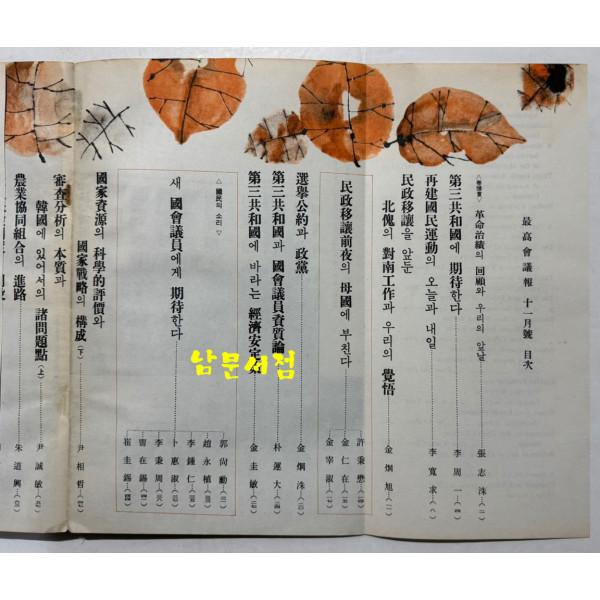 最高會議報 十一月號 目次
革命治績의 回顧와 우리의 앞날 張志洙
第三共和國에 期待한다 李周一
再建國民運動의 오늘과 내일 李寬求
民政移讓을 앞둔
北傀의 對南工作과 우리의 覺悟 金炯旭
民政移讓前夜의 母國에 부친다
許秉懋
金仁在
金宰淑
選擧公約과 政黨 金炯洙
第三共和國과 國會議員資質論 朴運大
第三共和國에 바라는 經濟安定 金圭敏
△ 國民의 소리 ▽
새 國會議員에게 期待한다
郭尙勳
趙永植
李鍾仁
卜惠淑
李秉周
曺在錫
崔圭錫
國家資源의 科學的評價와
國家戰略의 構成(下) 尹相哲
審査分析의 本質과
韓國에 있어서의 諸問題點(上) 尹誠敏
農業協同組合의 進路 朱道興
남문서점